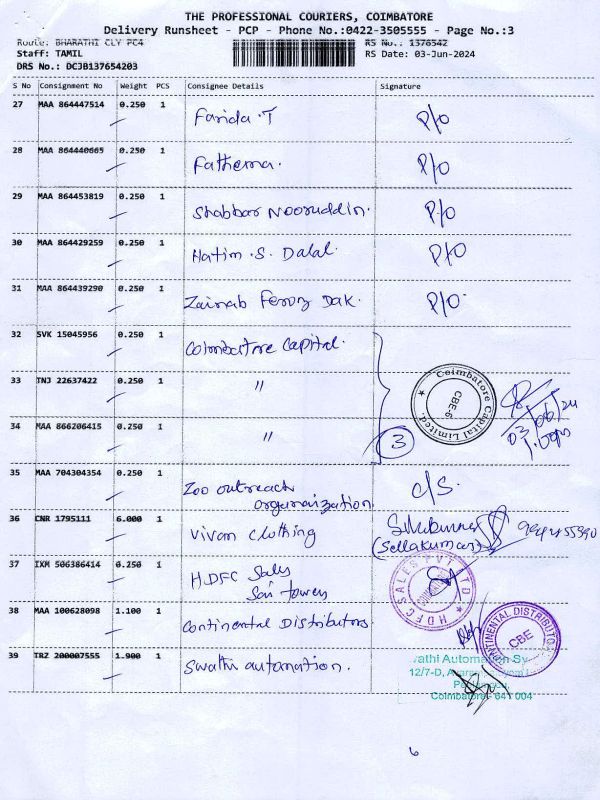 THE PROFESSIONAL COURIERS, COIMBATORE
Delivery Runsheet - PCP - Phone No.:0422-3505555 - Page No.:3
Route: BHARATHI CLY PC4 RS No.: 1376542
Staff: TAMIL RS Date: 03-Jun-2024
DRS No.: DCJB137654203
S No Consignment No Weight PCS Consignee Details Signature
27 MAA 864447514 0.250 1 Farida.T P/O
28 MAA 864440665 0.250 1 Fathema. P/O
29 MAA 864453819 0.250 1 Shabbar Nooruddin. P/O
30 MAA 864429259 0.250 1 Hatim .S. Dalal. P/O
31 MAA 864439290 0.250 1 Zainab Feroz Dak. P/O.
32 SVK 15045956 0.250 1 Coimbatore Capital.
33 TNJ 22637422 0.250 1 "
Coimbatore Capital Limited. CBE-6
03/06/24
1.00pm
34 MAA 866206415 0.250 1 " 3
35 MAA 704304354 0.250 1 Zoo outreach C/S.
organization.
36 CNR 1795111 6.000 1 Vivam Clothing
(Sellakumar)
37 IXM 506386414 0.250 1 HDFC Sales
Sai towers
HDFC SALES PVT LTD
38 MAA 100628098 1.100 1 Continental Distributors.
CONTINENTAL DISTRIBUTORS CBE
39 TRZ 200007555 1.900 1 Swathi automation.
wathi Automation Sy
12/7-D,
Coimbatore - 641 004
6